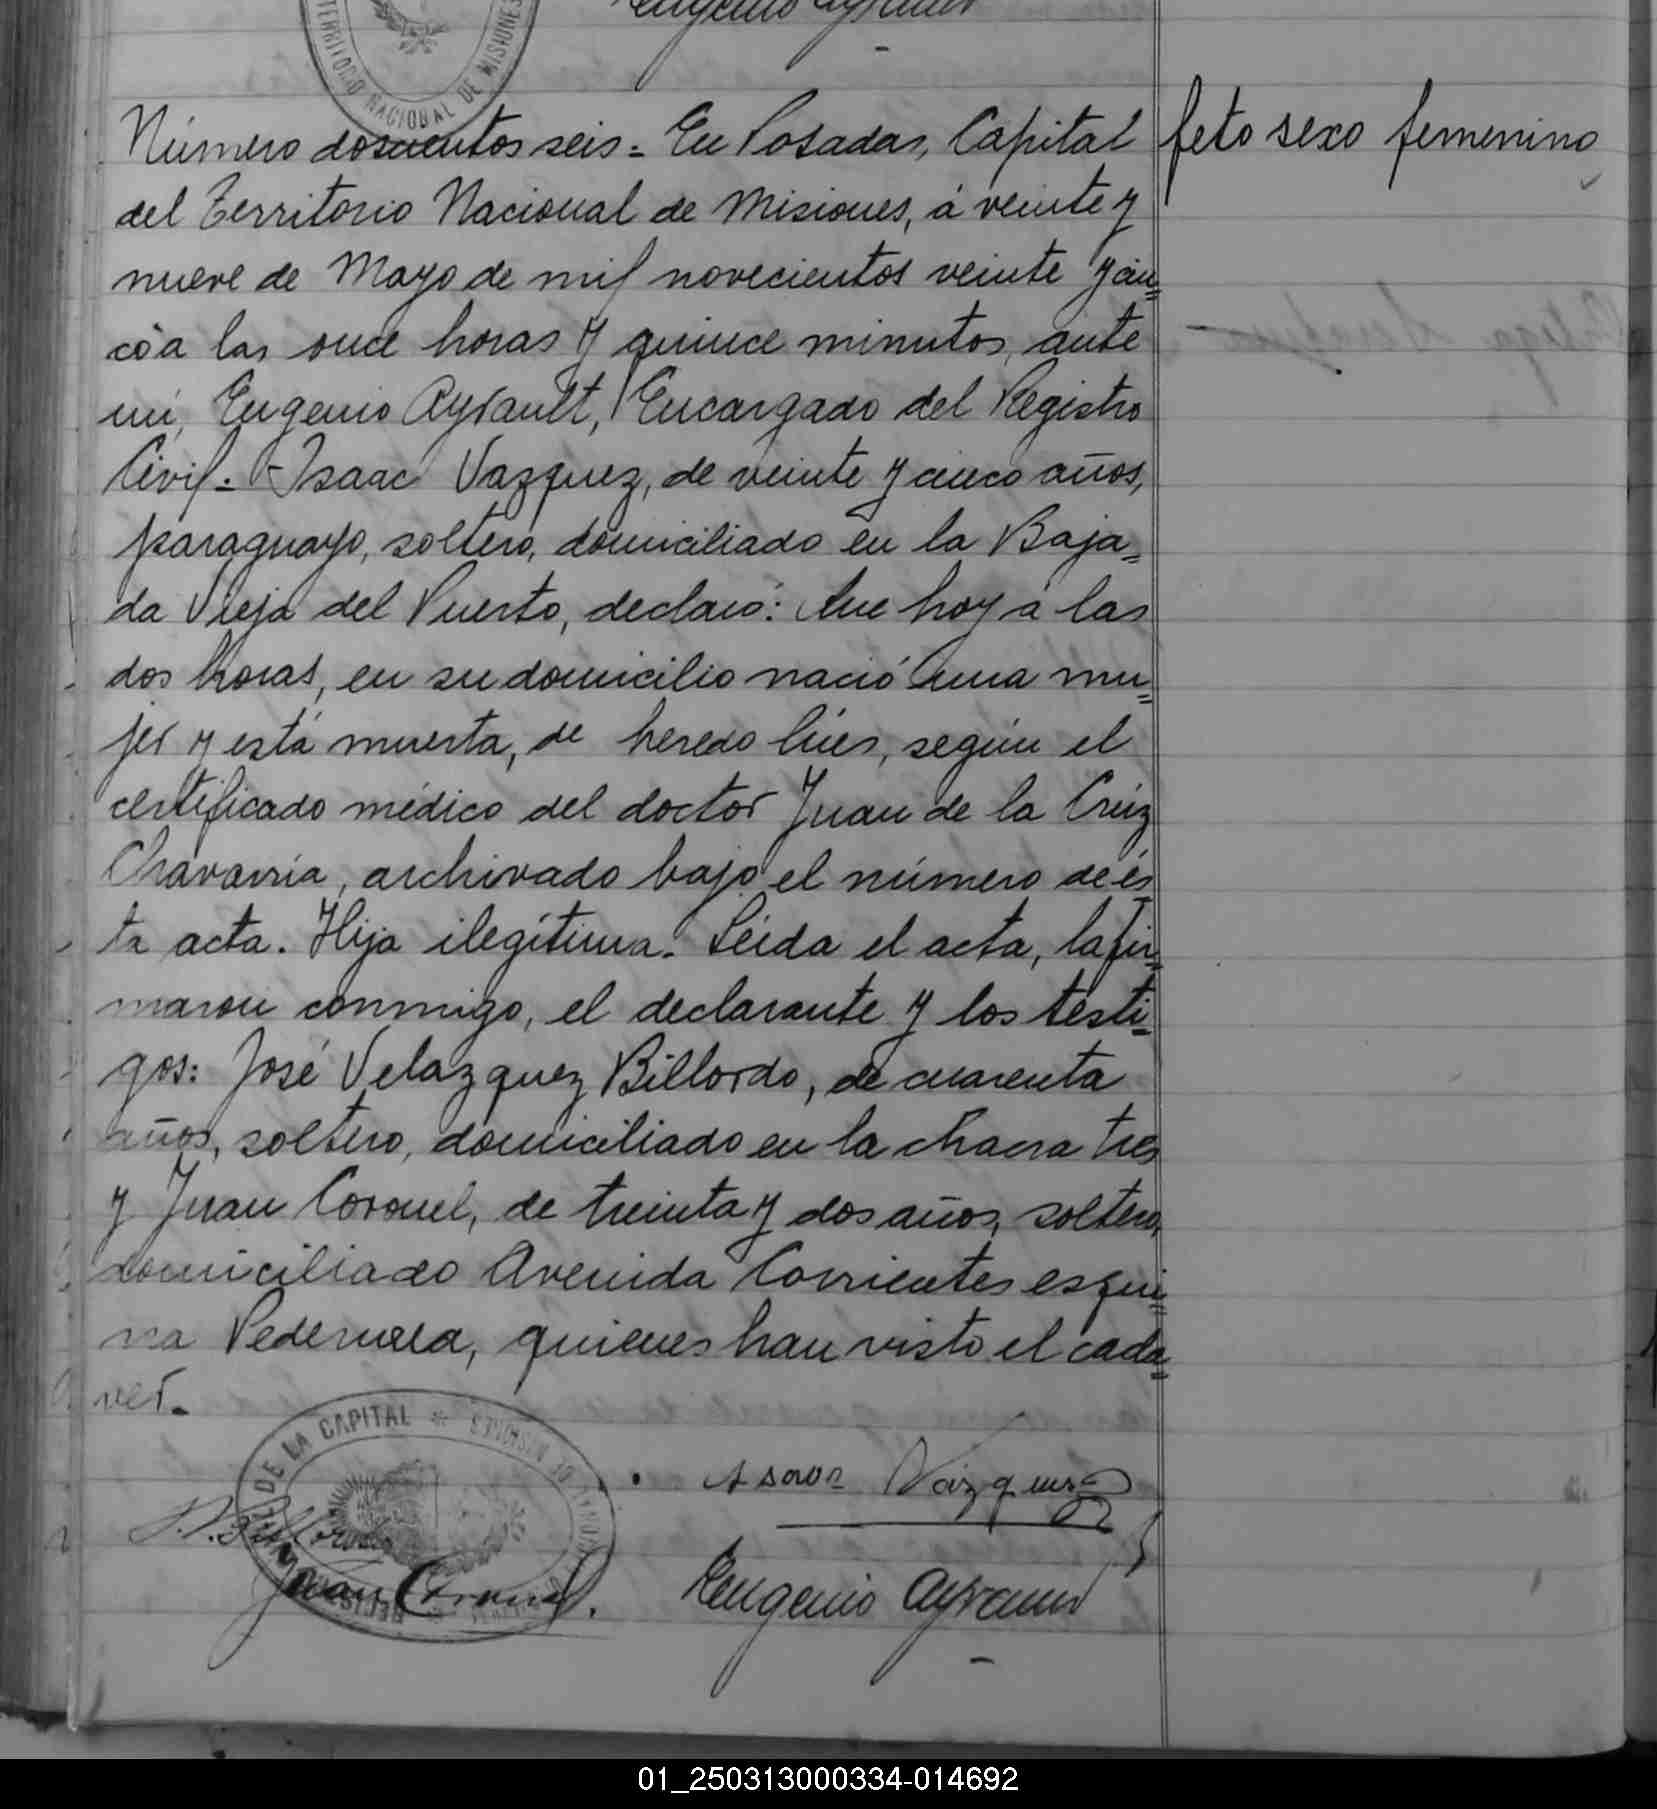 TERRITORIO NACIONAL DE MISIONES
Número doscientos seis = En Posadas, Capital
feto sexo femenino
del Territorio Nacional de Misiones, á veinte y
nueve de Mayo de mil novecientos veinte y cin=
co á las once horas y quince minutos, ante
mí, Eugenio Ayrault, Encargado del Registro
Civil.- Isaac Vazquez, de veinte y cinco años,
paraguayo, soltero, domiciliado en la Baja=
da Vieja del Puerto, declaró: Que hoy á las
dos horas, en su domicilio nació una mu=
jer y está muerta, de heredo lúes, según el
certificado médico del doctor Juan de la Crúz
Chavarría, archivado bajo el número de és
ta acta. Hija ilegítima. Leída el acta, la fir=
maron conmigo, el declarante y los testi=
gos: José Velazquez Billordo, de cuarenta
años, soltero, domiciliado en la chacra tres
y Juan Coronel, de treinta y dos años, soltero,
domiciliado Avenida Corrientes esqui=
na Pedernera, quienes han visto el cada=
ver.-
DE LA CAPITAL * MISIONES
Vazquez
Juan Coronel.
Eugenio Ayrault
01_250313000334-014692